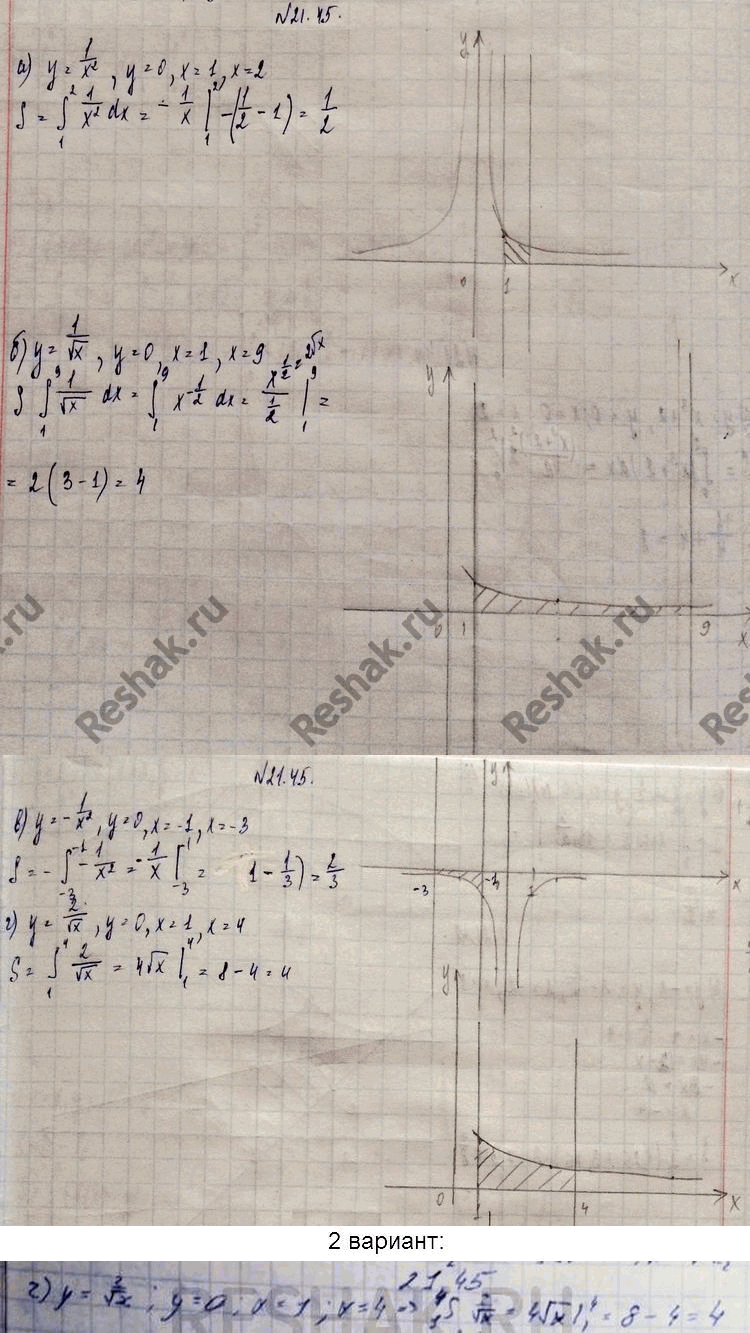 №21.45.
а) y = 1/x², y=0, x=1, x=2
S = ∫₁² 1/x² dx = -1/x |₁² -(1/2 - 1) = 1/2
y
0 1 x
б) y = 1/√x, y=0, x=1, x=9
S ∫₁⁹ 1/√x dx = ∫₁⁹ x^(-1/2) dx = x^(1/2)/(1/2) = 2√x |₁⁹ =
= 2(3-1) = 4
y
0 1 9 x
Reshak.ru
Reshak.ru
Reshak.ru
№21.45.
в) y = -1/x², y=0, x=-1, x=-3
S = -∫₋₃⁻¹ -1/x² = -1/x |₋₃⁻¹ = 1 - 1/3) = 2/3
y
-3 -3 1 x
г) y = 2/√x, y=0, x=1, x=4
S = ∫₁⁴ 2/√x = 4√x |₁⁴ = 8 - 4 = 4
y
0 1 4 x
2 вариант:
21.45
г) y = 2/√x ; y=0 ; x=1 ; x=4 => ₁⁴∫ 2/√x = 4√x |₁⁴ = 8 - 4 = 4
RESHAK.RU